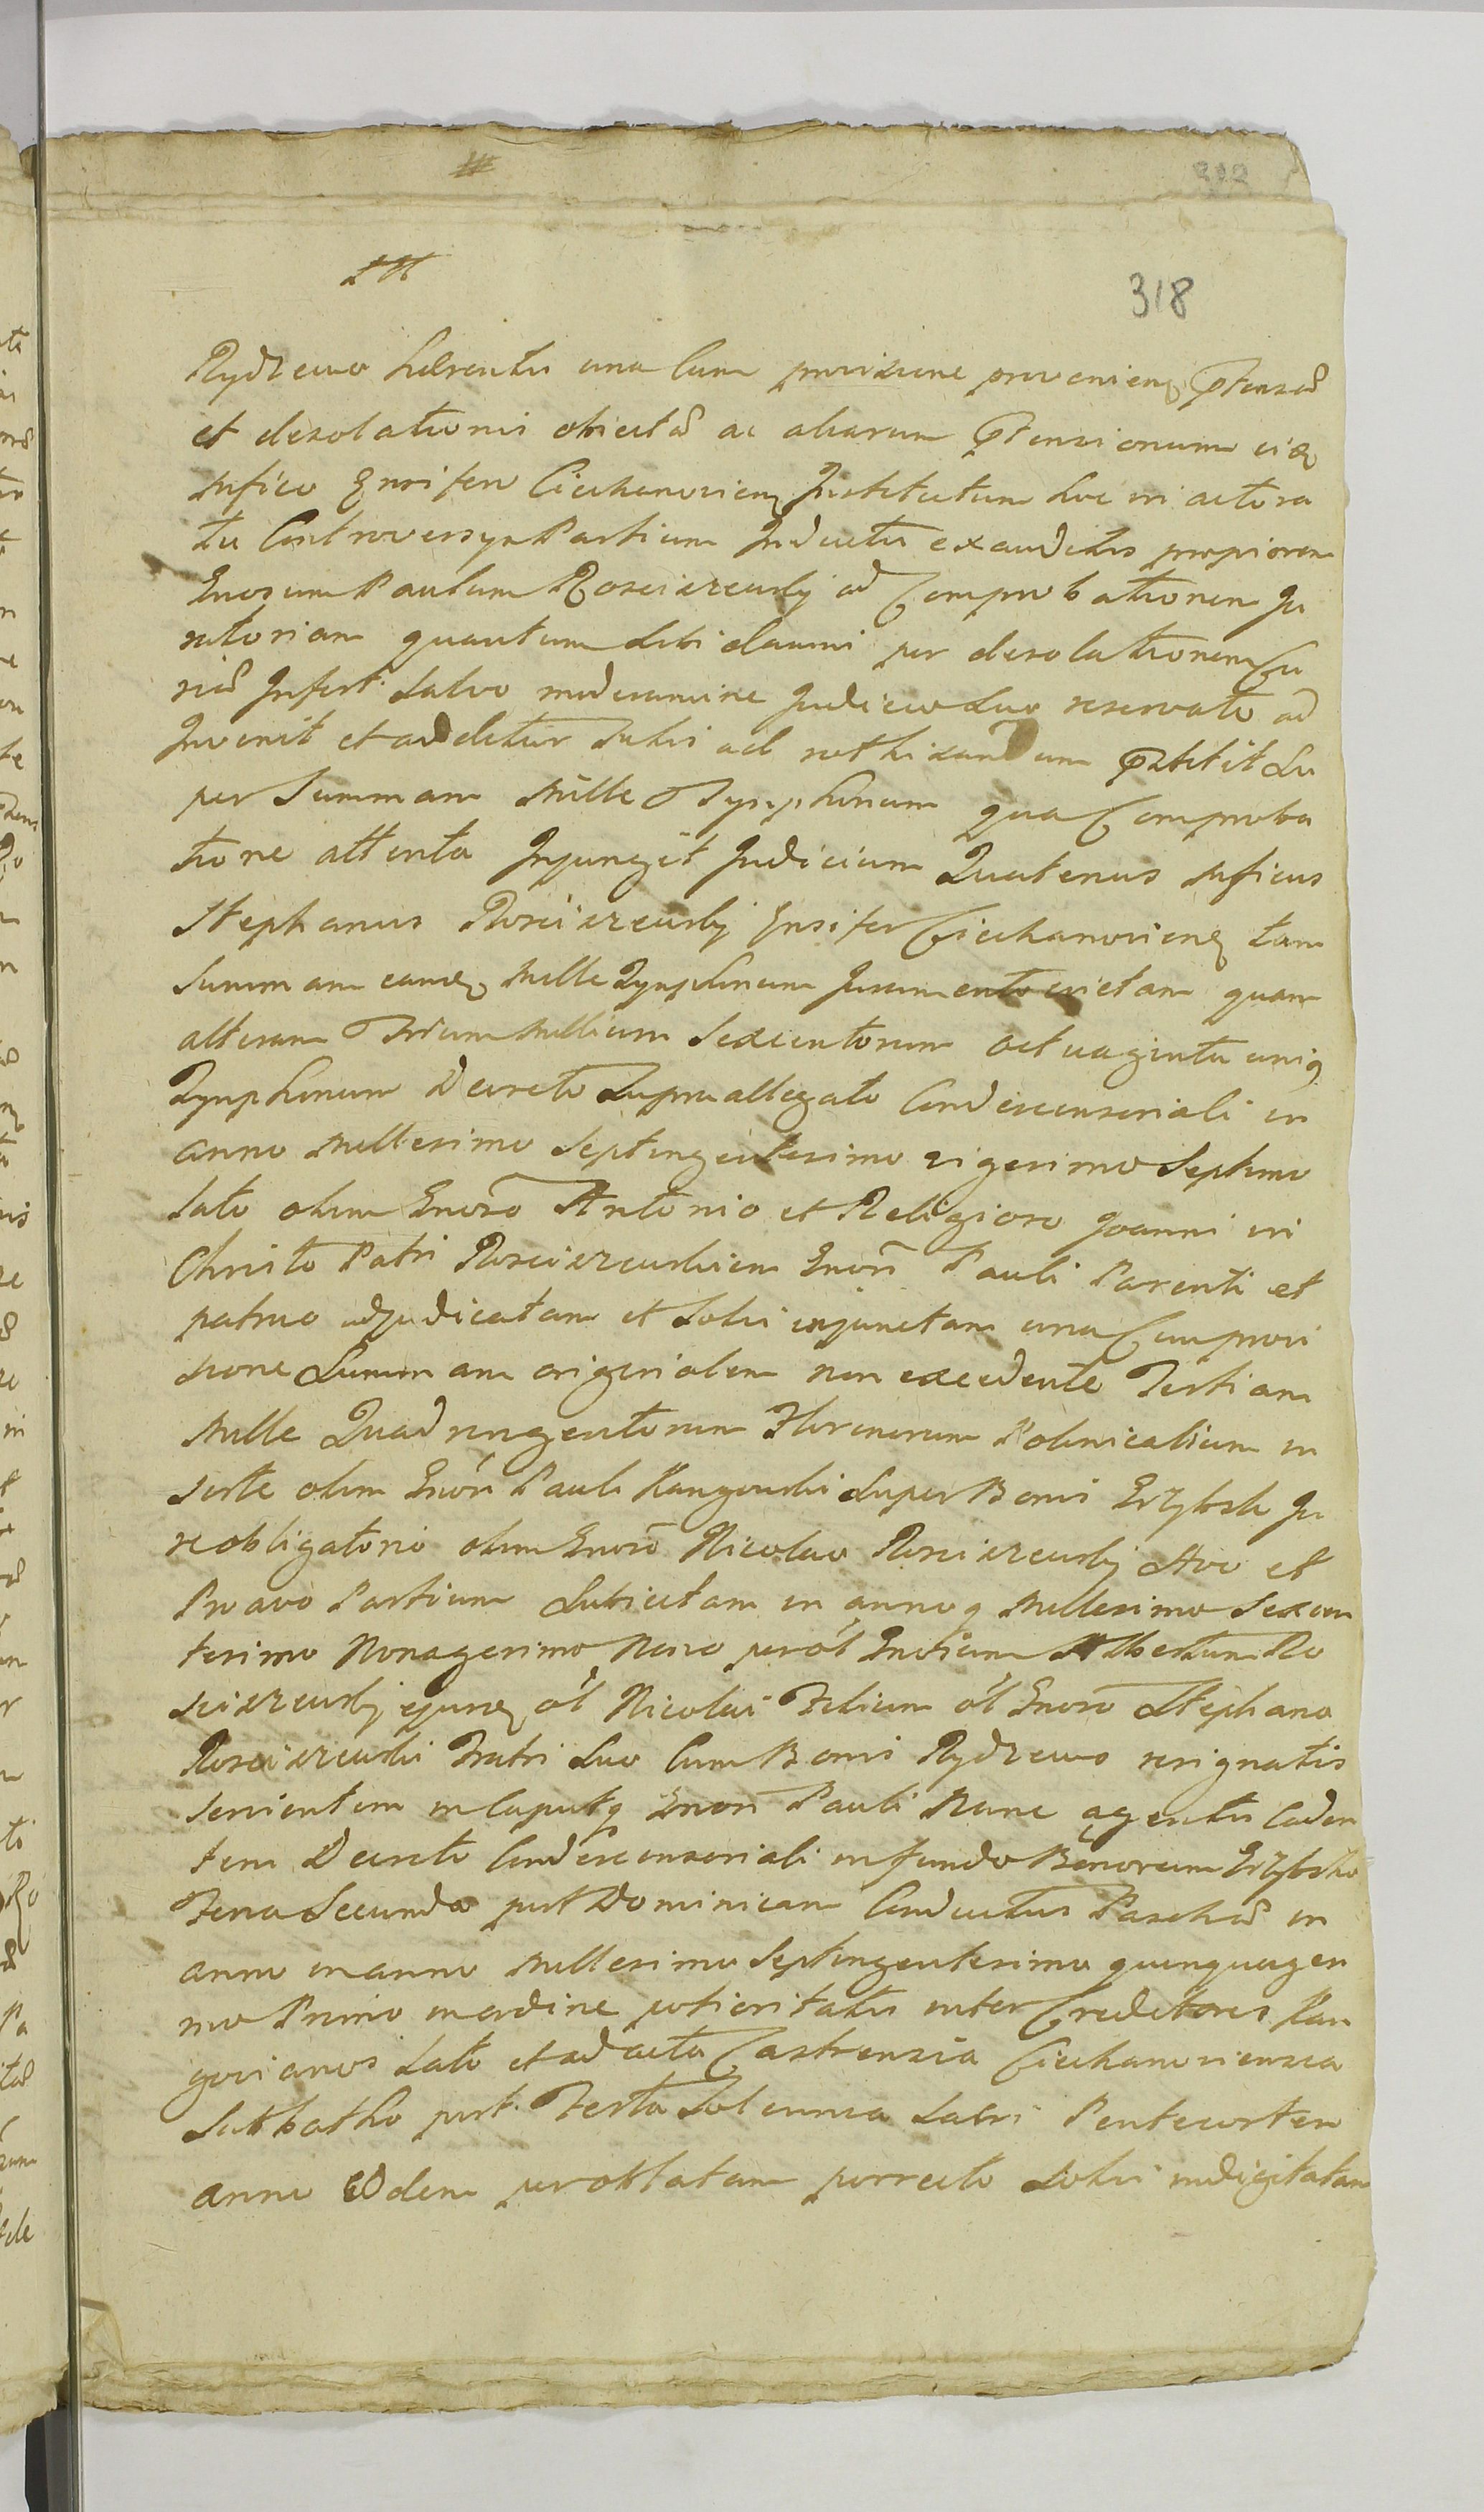 318
Rydzewo haerentis una cum provisione provenien ptensae
et desolationis obiectae ac aliarum ptensionum
Mfico Ensifero Ciechanovien Institutum hoc in actora
tu Controversys Partium Inductis exauditis propiorem
Gnosum Paulum Rosciszewskj ad Comprobationem Ju
ratoriam quantum sibi damni per desolationem Cu
riae Infert. Salvo moderamine Judicio suo reservato ad
Invenit et ad dictus sibi ad rothisandum pstitit Su
per Summam Mille Tynphonum qua Comproba
tione attenta Injungit Judicium Quatenus Mficus
Stephanus Rosciszewskj Ensifer Ciechanovien tam
Summam eand Mille Tynphonum Juramento evictam quam
alteram Trium Millium Sexcentorum octuaginta unius
Tynphonum Decreto Supra allegato Condescensoriali in
anno Millesimo Septingentesimo vigesimo Septimo
lato olim Gnoso Antonio et Religioso Joanni in
Christo Patri Rosciszewskiem Gnosi Pauli Parenti et
patruo adjudicatam et solvi injunctam una Cum provi
sione Summam originalem non excedente Tertiam
Mille Quadringentorum Florenorum Polonicalium in
sorte olim Gnosi Pauli Kangowski Super Bonis Grzybsk Ju
re obligatorio olim Gnoso Nicolao Rosciszewskj Avo et
Proavo Partium Subiectam in annoq Millesimo Sexcen
tesimo Nonagesimo Nono per ol Gnosum Albertum Ro
sciszewskj ejusd ol Nicolai Filium ol Gnoso Stephano
Rosciszewski Fratri Suo Cum Bonis Rydzewo resignatis
servientem in Caputq Gnosi Pauli Nunc agentis Caden
tem Decreto Condescensoriali in fundo Bonorum Grzybsko
Feria Secunda post Dominicam Conductus Paschae in
anno in anno Millesimo Septingentesimo quinquagesi
mo Primo in ordine potioritatis inter Creditores Kan
govianos lato et ad acta Castrensia Ciechanoviensia
Sabbatho post Festa Solennia Sacri Pentecostes
anno Eodem per oblatam porrecto solvi indigitatam